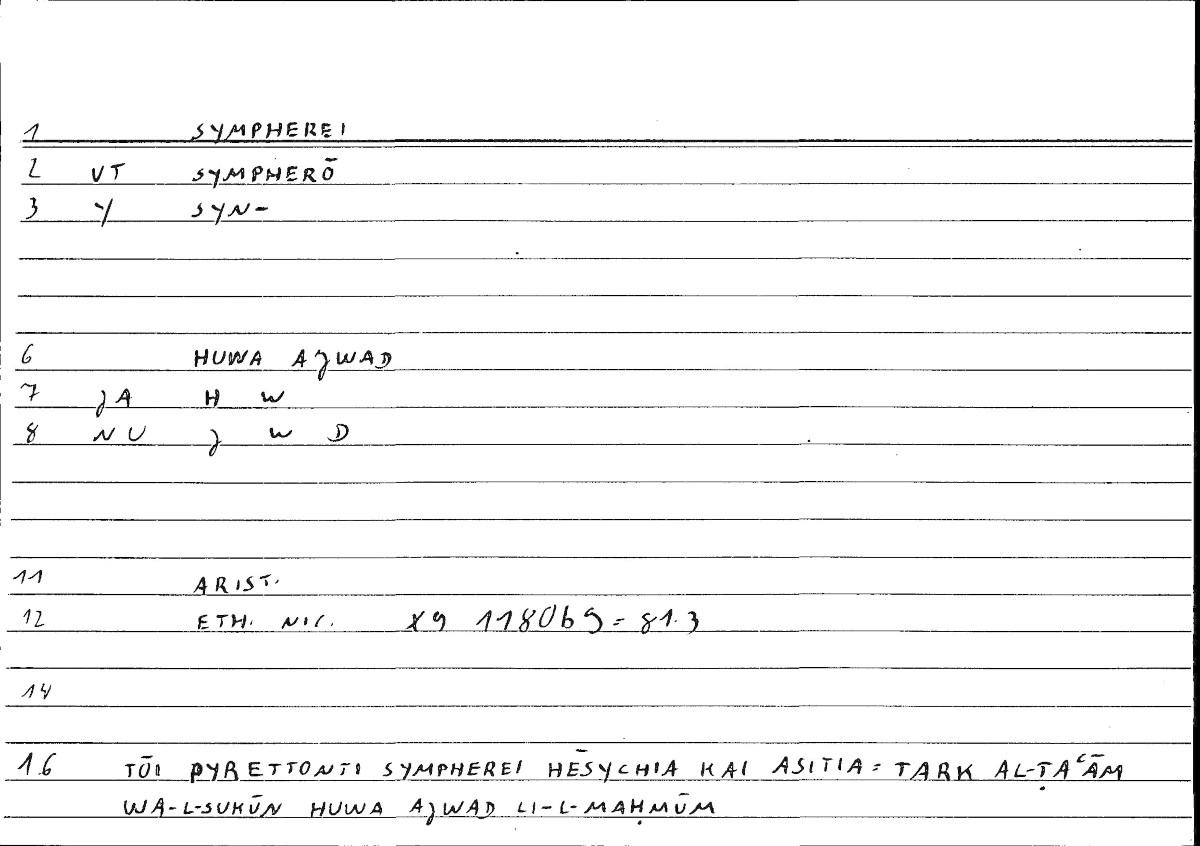 1 SYMPHEREI
2 VT SYMPHERŌ
3 Y SYN-
6 HUWA AJWAD
7 JA H W
8 NU J W D
11 ARIST.
12 ETH. NIC. X9 1180b9 = 81.3
14
16 TŌI PYRETTONTI SYMPHEREI HĒSYCHIA KAI ASITIA = TARK AL-ṬAʿĀM
WA-L-SUKŪN HUWA AJWAD LI-L-MAḤMŪM